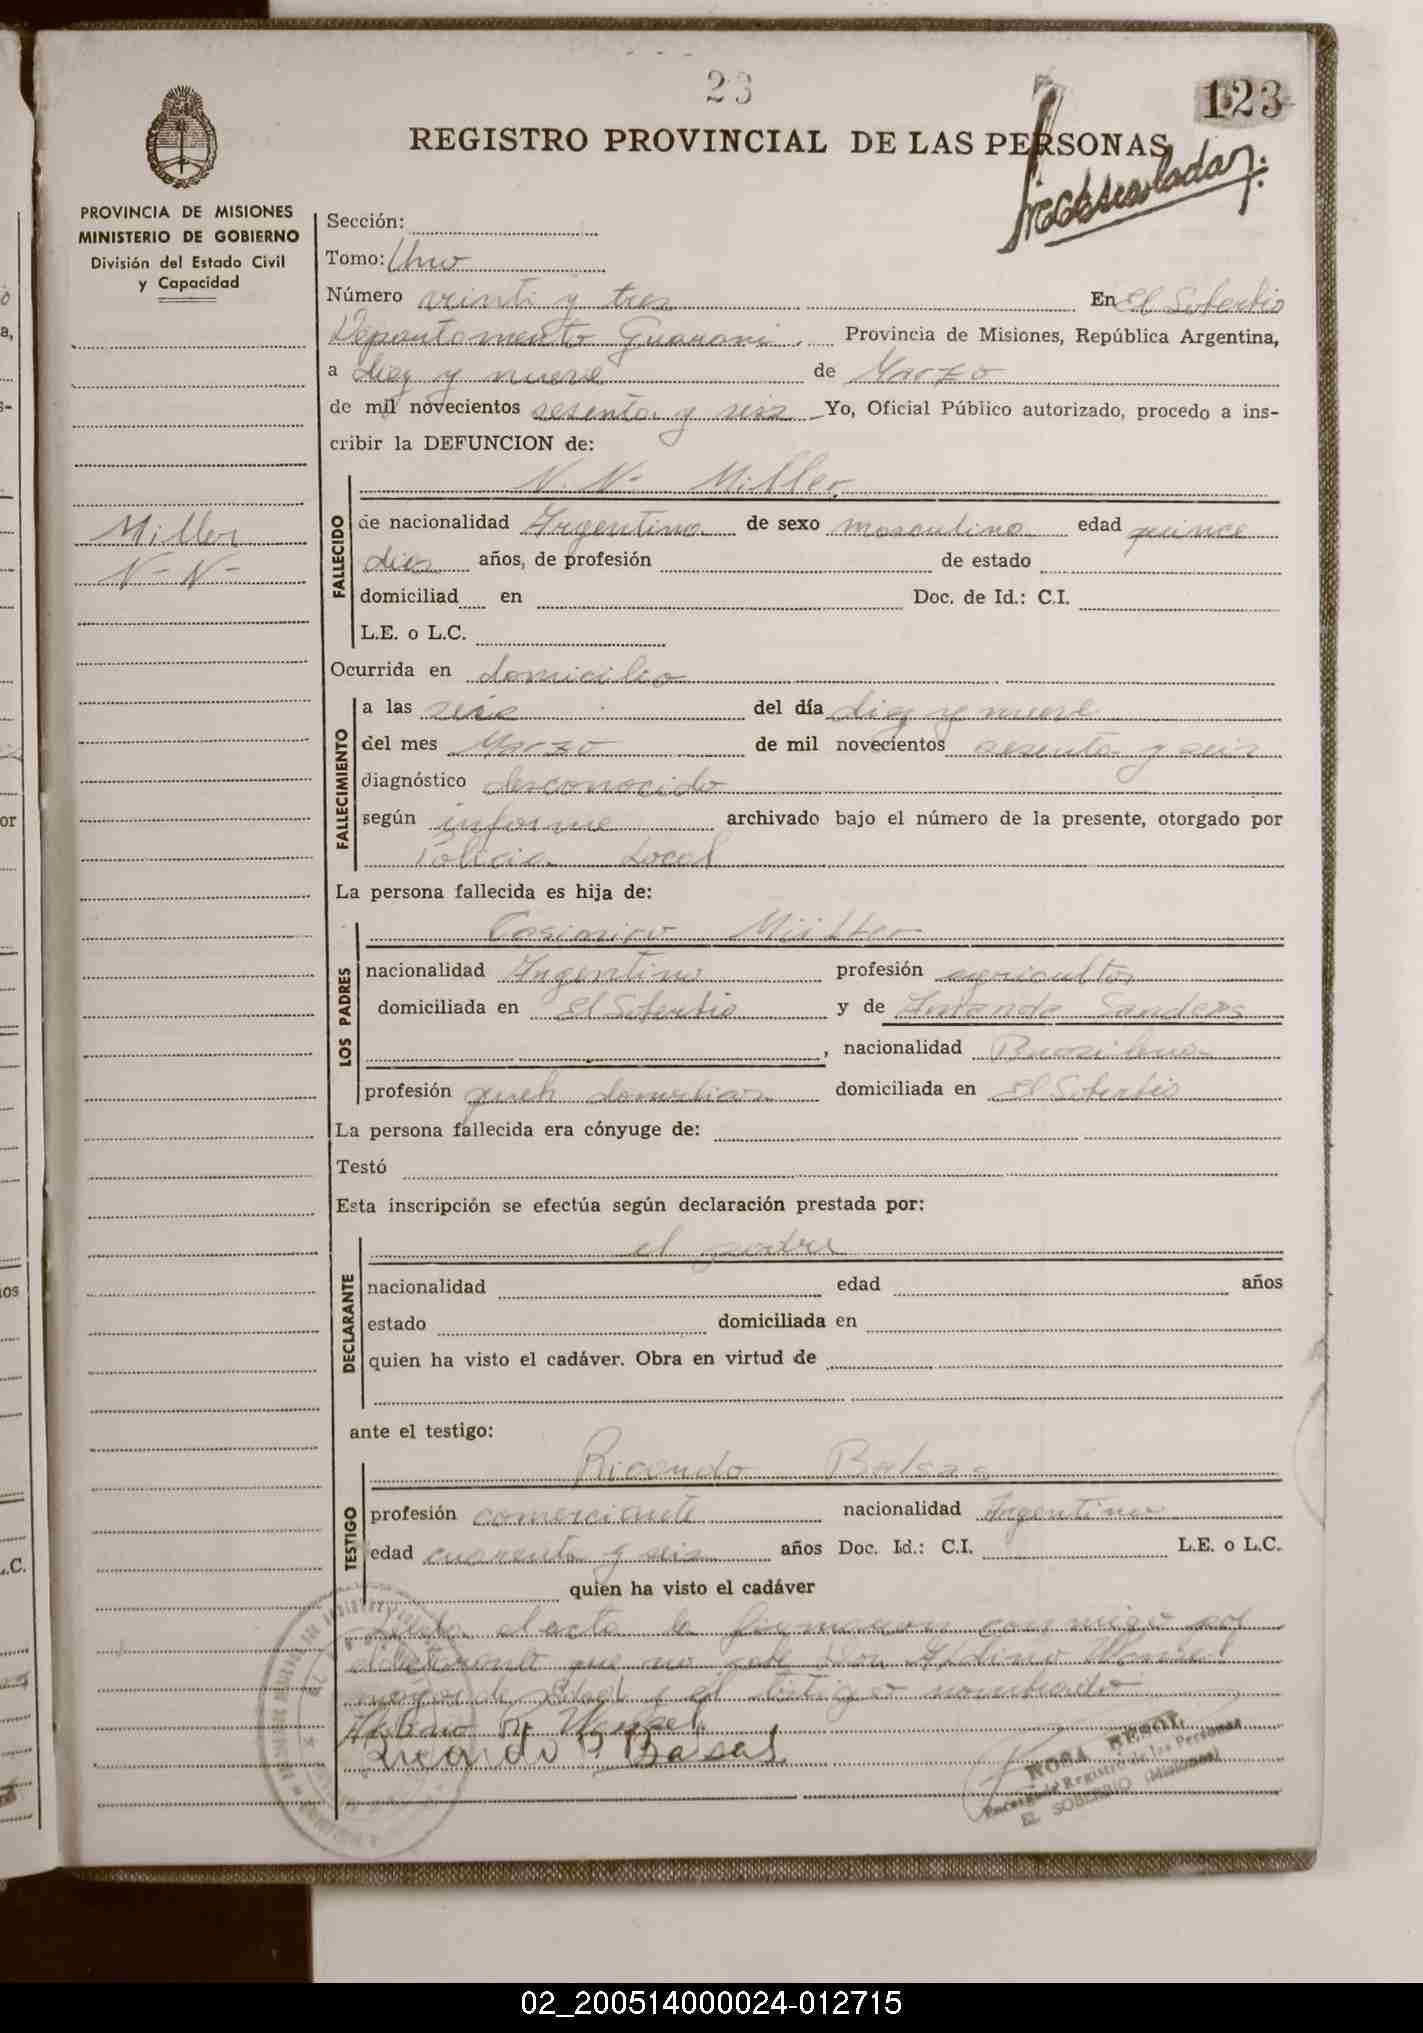 23
123
REGISTRO PROVINCIAL DE LAS PERSONAS
PROVINCIA DE MISIONES
MINISTERIO DE GOBIERNO
División del Estado Civil
y Capacidad
Miller
N- N-
Sección:
Tomo: Uno
Número veinti y tres En El Soberbio
Departamento Guarani. Provincia de Misiones, República Argentina,
a diez y nueve de Marzo
de mil novecientos sesenta y seis Yo, Oficial Público autorizado, procedo a ins-
cribir la DEFUNCION de:
N. N- Miller
FALLECIDO
de nacionalidad Argentina de sexo masculino edad quince
dias años, de profesión de estado
domiciliad en Doc. de Id.: C.I.
L.E. o L.C.
Ocurrida en domicilio
FALLECIMIENTO
a las seis del día diez y nueve
del mes Marzo de mil novecientos sesenta y seis
diagnóstico desconocido
según informe archivado bajo el número de la presente, otorgado por
Policia Local
La persona fallecida es hija de:
LOS PADRES
Casimiro
nacionalidad Argentino profesión agricultor
domiciliada en El Soberbio y de Amanda Sanders
, nacionalidad
profesión domiciliada en El Soberbio
La persona fallecida era cónyuge de:
Testó
Esta inscripción se efectúa según declaración prestada por:
DECLARANTE
el padre
nacionalidad edad años
estado domiciliada en
quien ha visto el cadáver. Obra en virtud de
ante el testigo:
TESTIGO
Ricardo
profesión comerciante nacionalidad Argentino
edad cuarenta y seis años Doc. Id.: C.I. L.E. o L.C.
quien ha visto el cadáver
el acta la conmigo por
que no sabe Don
mayor de edad y el testigo nombrado
Ricardo
NORA
Registro de las Personas
EL SOBERBIO (Misiones)
02_200514000024-012715